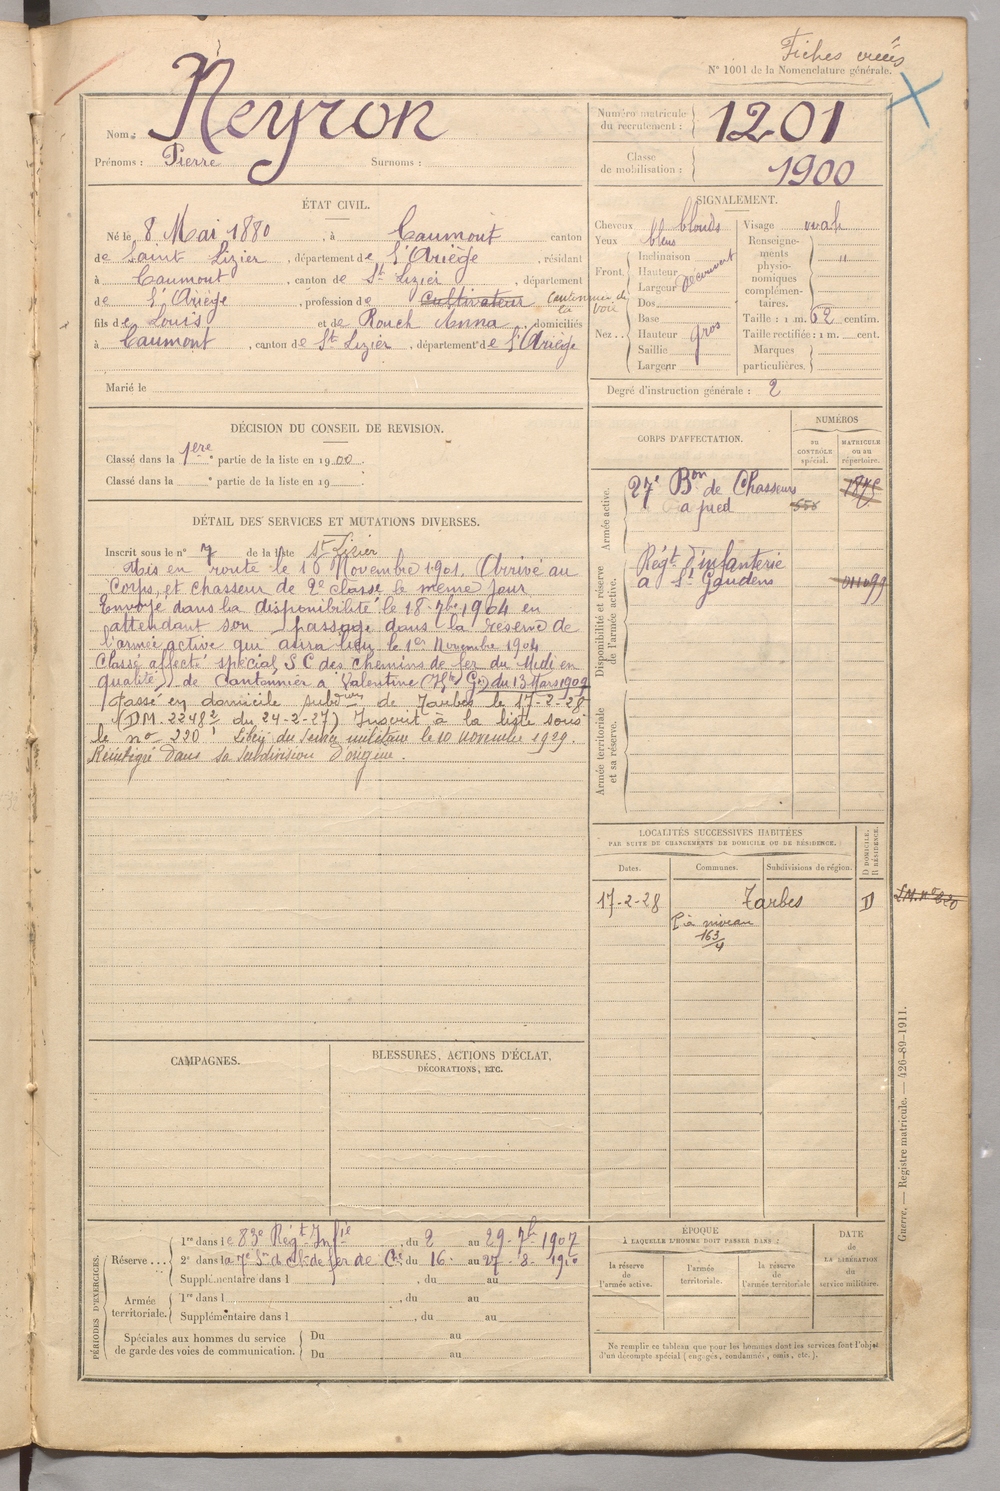 Fiches créés
N° 1001 de la Nomenclature générale.
Nom : Neyron
Prénoms : Pierre Surnoms :
Numéro matricule du recrutement : 1201
Classe de mobilisation : 1900
ÉTAT CIVIL.
Né le 8 Mai 1880, à Caumont canton
de Saint Lizier, département de l'Ariège, résidant
à Caumont, canton de St Lizier, département
de l'Ariège, profession de Cultivateur Cantonnier de la voie
fils de Louis et de Rouch Anna, domiciliés
à Caumont, canton de St Lizier, département de l'Ariège
Marié le
SIGNALEMENT.
Cheveux blonds
Yeux bleus
Front. Inclinaison Hauteur Largeur découvert
Nez.. Dos Base Hauteur Saillie Largeur gros
Visage ovale
Renseignements physionomiques complémentaires. "
Taille : 1 m. 62 centim.
Taille rectifiée : 1 m. cent.
Marques particulières.
Degré d'instruction générale : 2
DÉCISION DU CONSEIL DE REVISION.
Classé dans la 1ere partie de la liste en 1900.
Classé dans la e partie de la liste en 19 .
CORPS D'AFFECTATION.
NUMÉROS
au CONTRÔLE spécial.
MATRICULE ou au répertoire.
Armée active.
27e Bon de Chasseurs
à pied
Disponibilité et réserve de l'armée active.
Régt d'infanterie
à St Gaudens
Armée territoriale et sa réserve.
DÉTAIL DES SERVICES ET MUTATIONS DIVERSES.
Inscrit sous le n° 7 de la liste St Lizier
Mis en route le 16 Novembre 1901. Arrivé au
Corps, et chasseur de 2e classe le même jour
Envoyé dans la disponibilité le 18 7bre 1904 en
attendant son passage dans la réserve de
l'armée active qui aura lieu le 1er Novembre 1904
Classé affecté spécial, S C des chemins de fer du Midi en
qualité de Cantonnier à Valentine (Hte Gne) du 13 Mars 1909
Passé en domicile subdvon de Tarbes le 17-2-28
(DM. 2248 2/ du 24-2-27) Inscrit à la liste sous
le no 220 Libéré du Service militaire le 10 novembre 1929.
Réintégré dans sa subdivision d'origine.
LOCALITÉS SUCCESSIVES HABITÉES
PAR SUITE DE CHANGEMENTS DE DOMICILE OU DE RÉSIDENCE.
Dates. Communes. Subdivisions de région. D DOMICILE. R RÉSIDENCE.
17-2-28 Tarbes D
P à niveau
163/4
CAMPAGNES.
BLESSURES, ACTIONS D'ÉCLAT,
DÉCORATIONS, ETC.
PÉRIODES D'EXERCICES.
Réserve... 1re dans le 83e Régt Infie, du 2 au 29-7b 1907
2e dans la 7e Son de Ch. de fer de Cne du 16 au 27-8-1910
Supplémentaire dans l , du au
Armée territoriale. 1re dans l , du au
Supplémentaire dans l , du au
Spéciales aux hommes du service de garde des voies de communication. Du au
Du au
ÉPOQUE
À LAQUELLE L'HOMME DOIT PASSER DANS :
la réserve de l'armée active.
l'armée territoriale.
la réserve de l'armée territoriale
DATE de LA LIBÉRATION du service militaire.
Ne remplir ce tableau que pour les hommes dont les services font l'objet
d'un décompte spécial (engagés, condamnés, omis, etc.).
Guerre. — Registre matricule. — 420-89-1911.